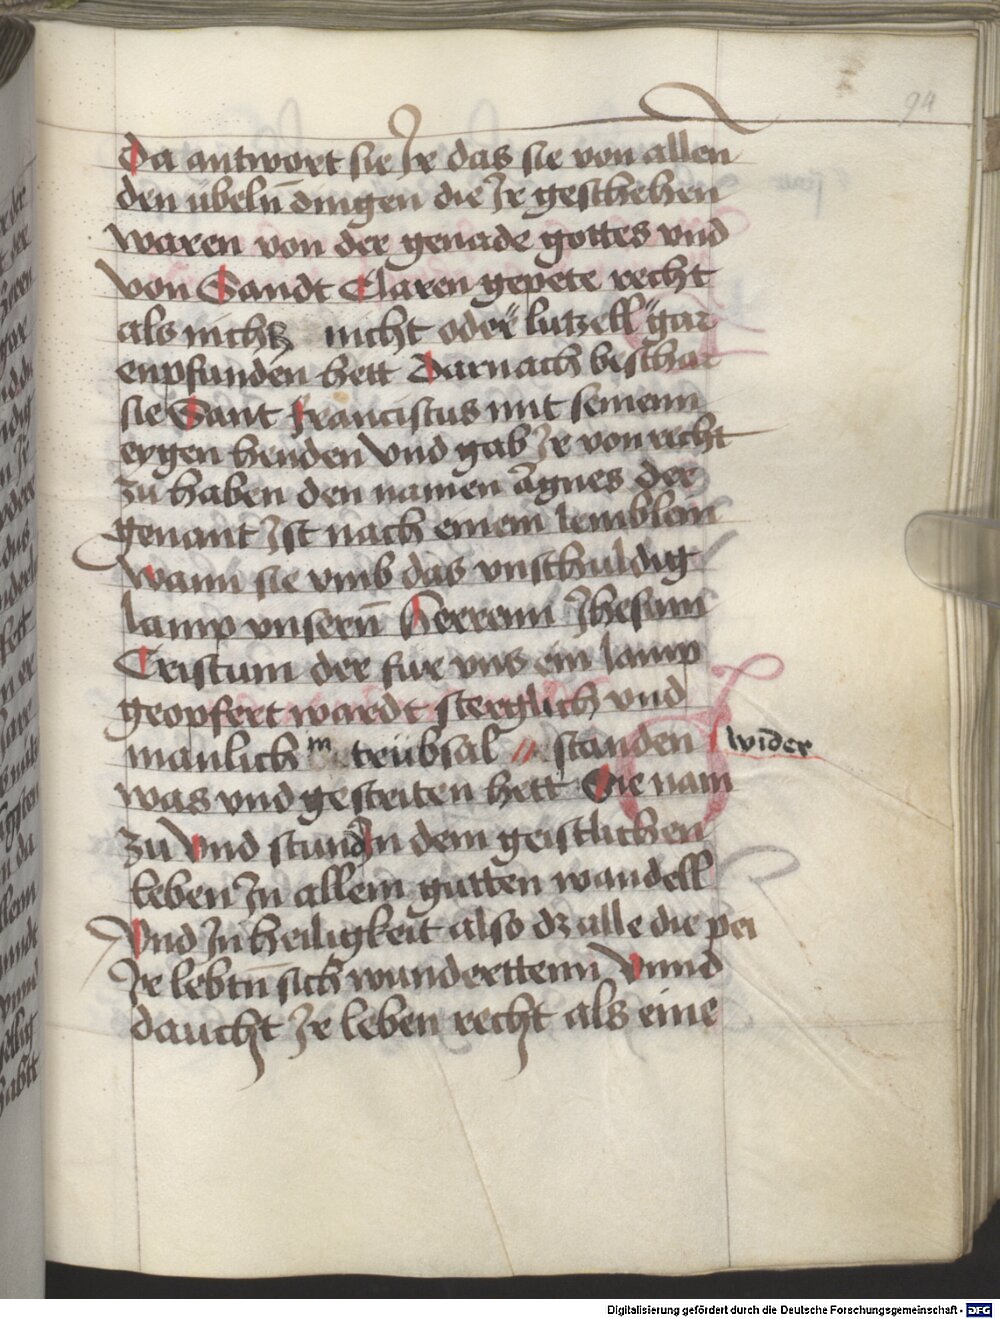 94
Da antwort sie Ir das sie von allen
den ubelñ dingen die Ir geschehen
waren von der genade gottes vnd
von Sandt Claren gepete recht
als nichtz nicht oder lutzell gar
enpfunden hett Darnach beschar
sie Sant Franciscus mit seinenn
eygen henden Vnd gab Ir von recht
zu haben den namen Agnes der
genant Ist nach einem lemblein
wann sie vmb das vnschuldig
lamp vnsern̄ Herrenn Jhesum
Cristum der fur vns ein lamp
geopfert wardt sterglich vnd
manlich m trübsal // standen
wider
was vnd gestriten hett Sie nam
zu Vnd stund In dem geistlichen
leben In allem gutten wandell
Vnd In heiligkeit also dz alle die pei
Ir lebtn̄ sich wunderttenn Vnnd
daucht Ir leben recht als eine
Digitalisierung gefördert durch die Deutsche Forschungsgemeinschaft - DFG